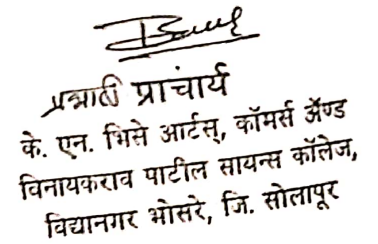 प्रभारी प्राचार्य
के. एन. भिसे आर्टस्, कॉमर्स ॲण्ड
विनायकराव पाटील सायन्स कॉलेज,
विद्यानगर भोसरे, जि. सोलापूर